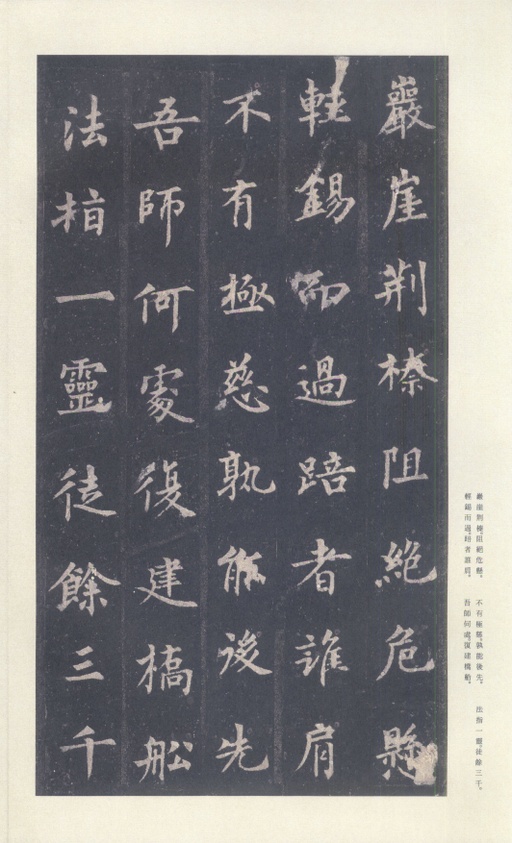 巖崖荆榛阻絶危懸
輕錫而過踣者誰肩
不有極慈孰能後先
吾師何處復建橋舩
法指一靈徒餘三千
巖崖荆榛,阻絕危懸。 不有極慈,孰能後先。 法指一靈,徒餘三千。
輕錫而過,踣者誰肩。 吾師何處,復建橋船。